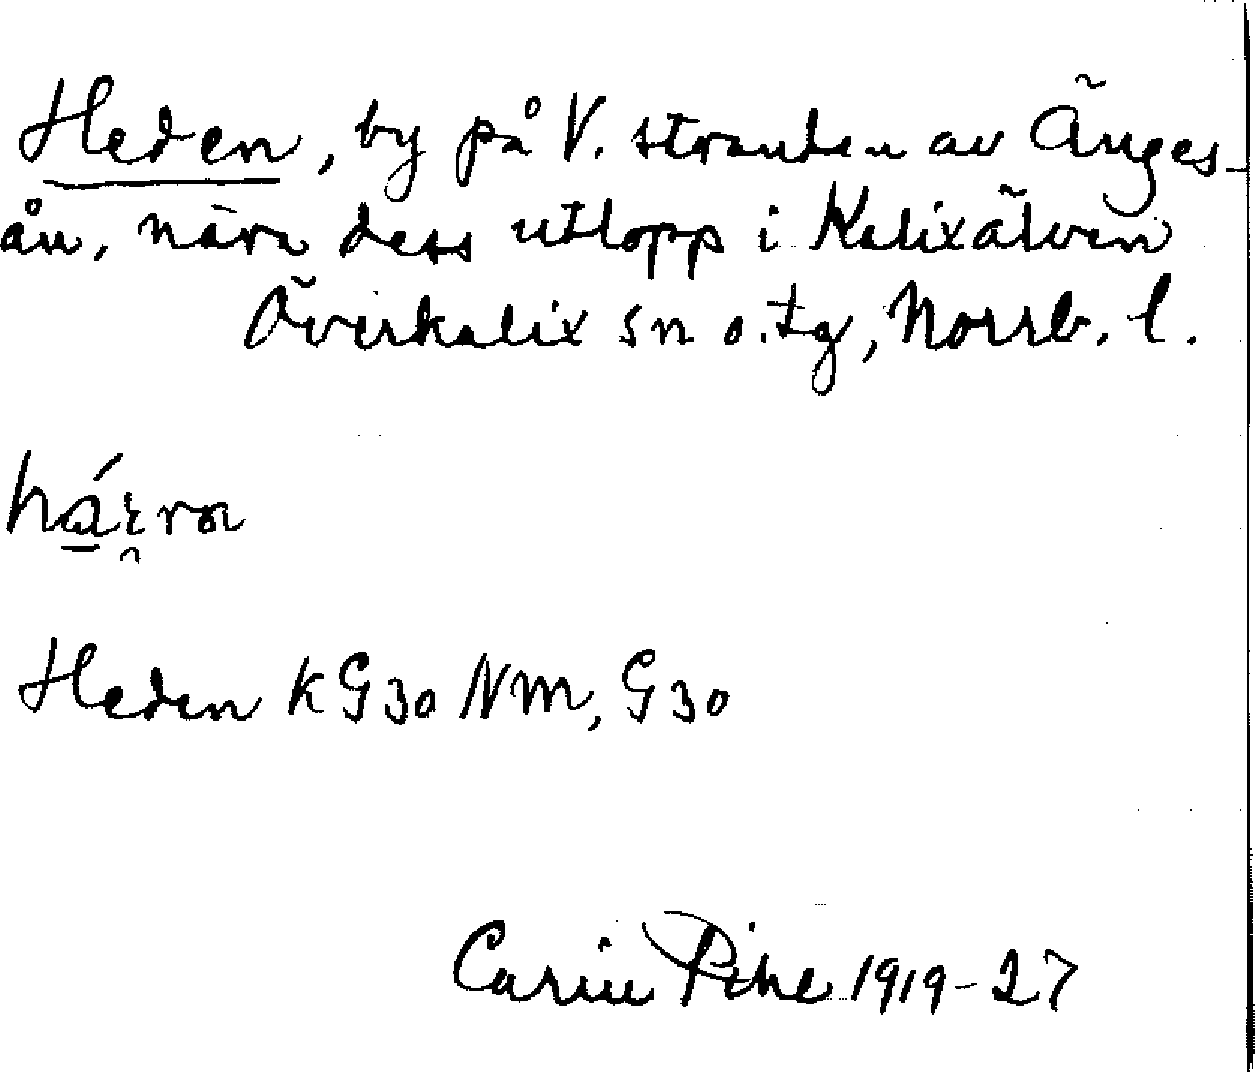 Heden, by på V. stranden av Änges-
ån, nära dess utlopp i Kalixälven
Överkalix sn o. tg, Norrb. l.
Heden k G30 NM, G30
Carin Pihl 1919-27